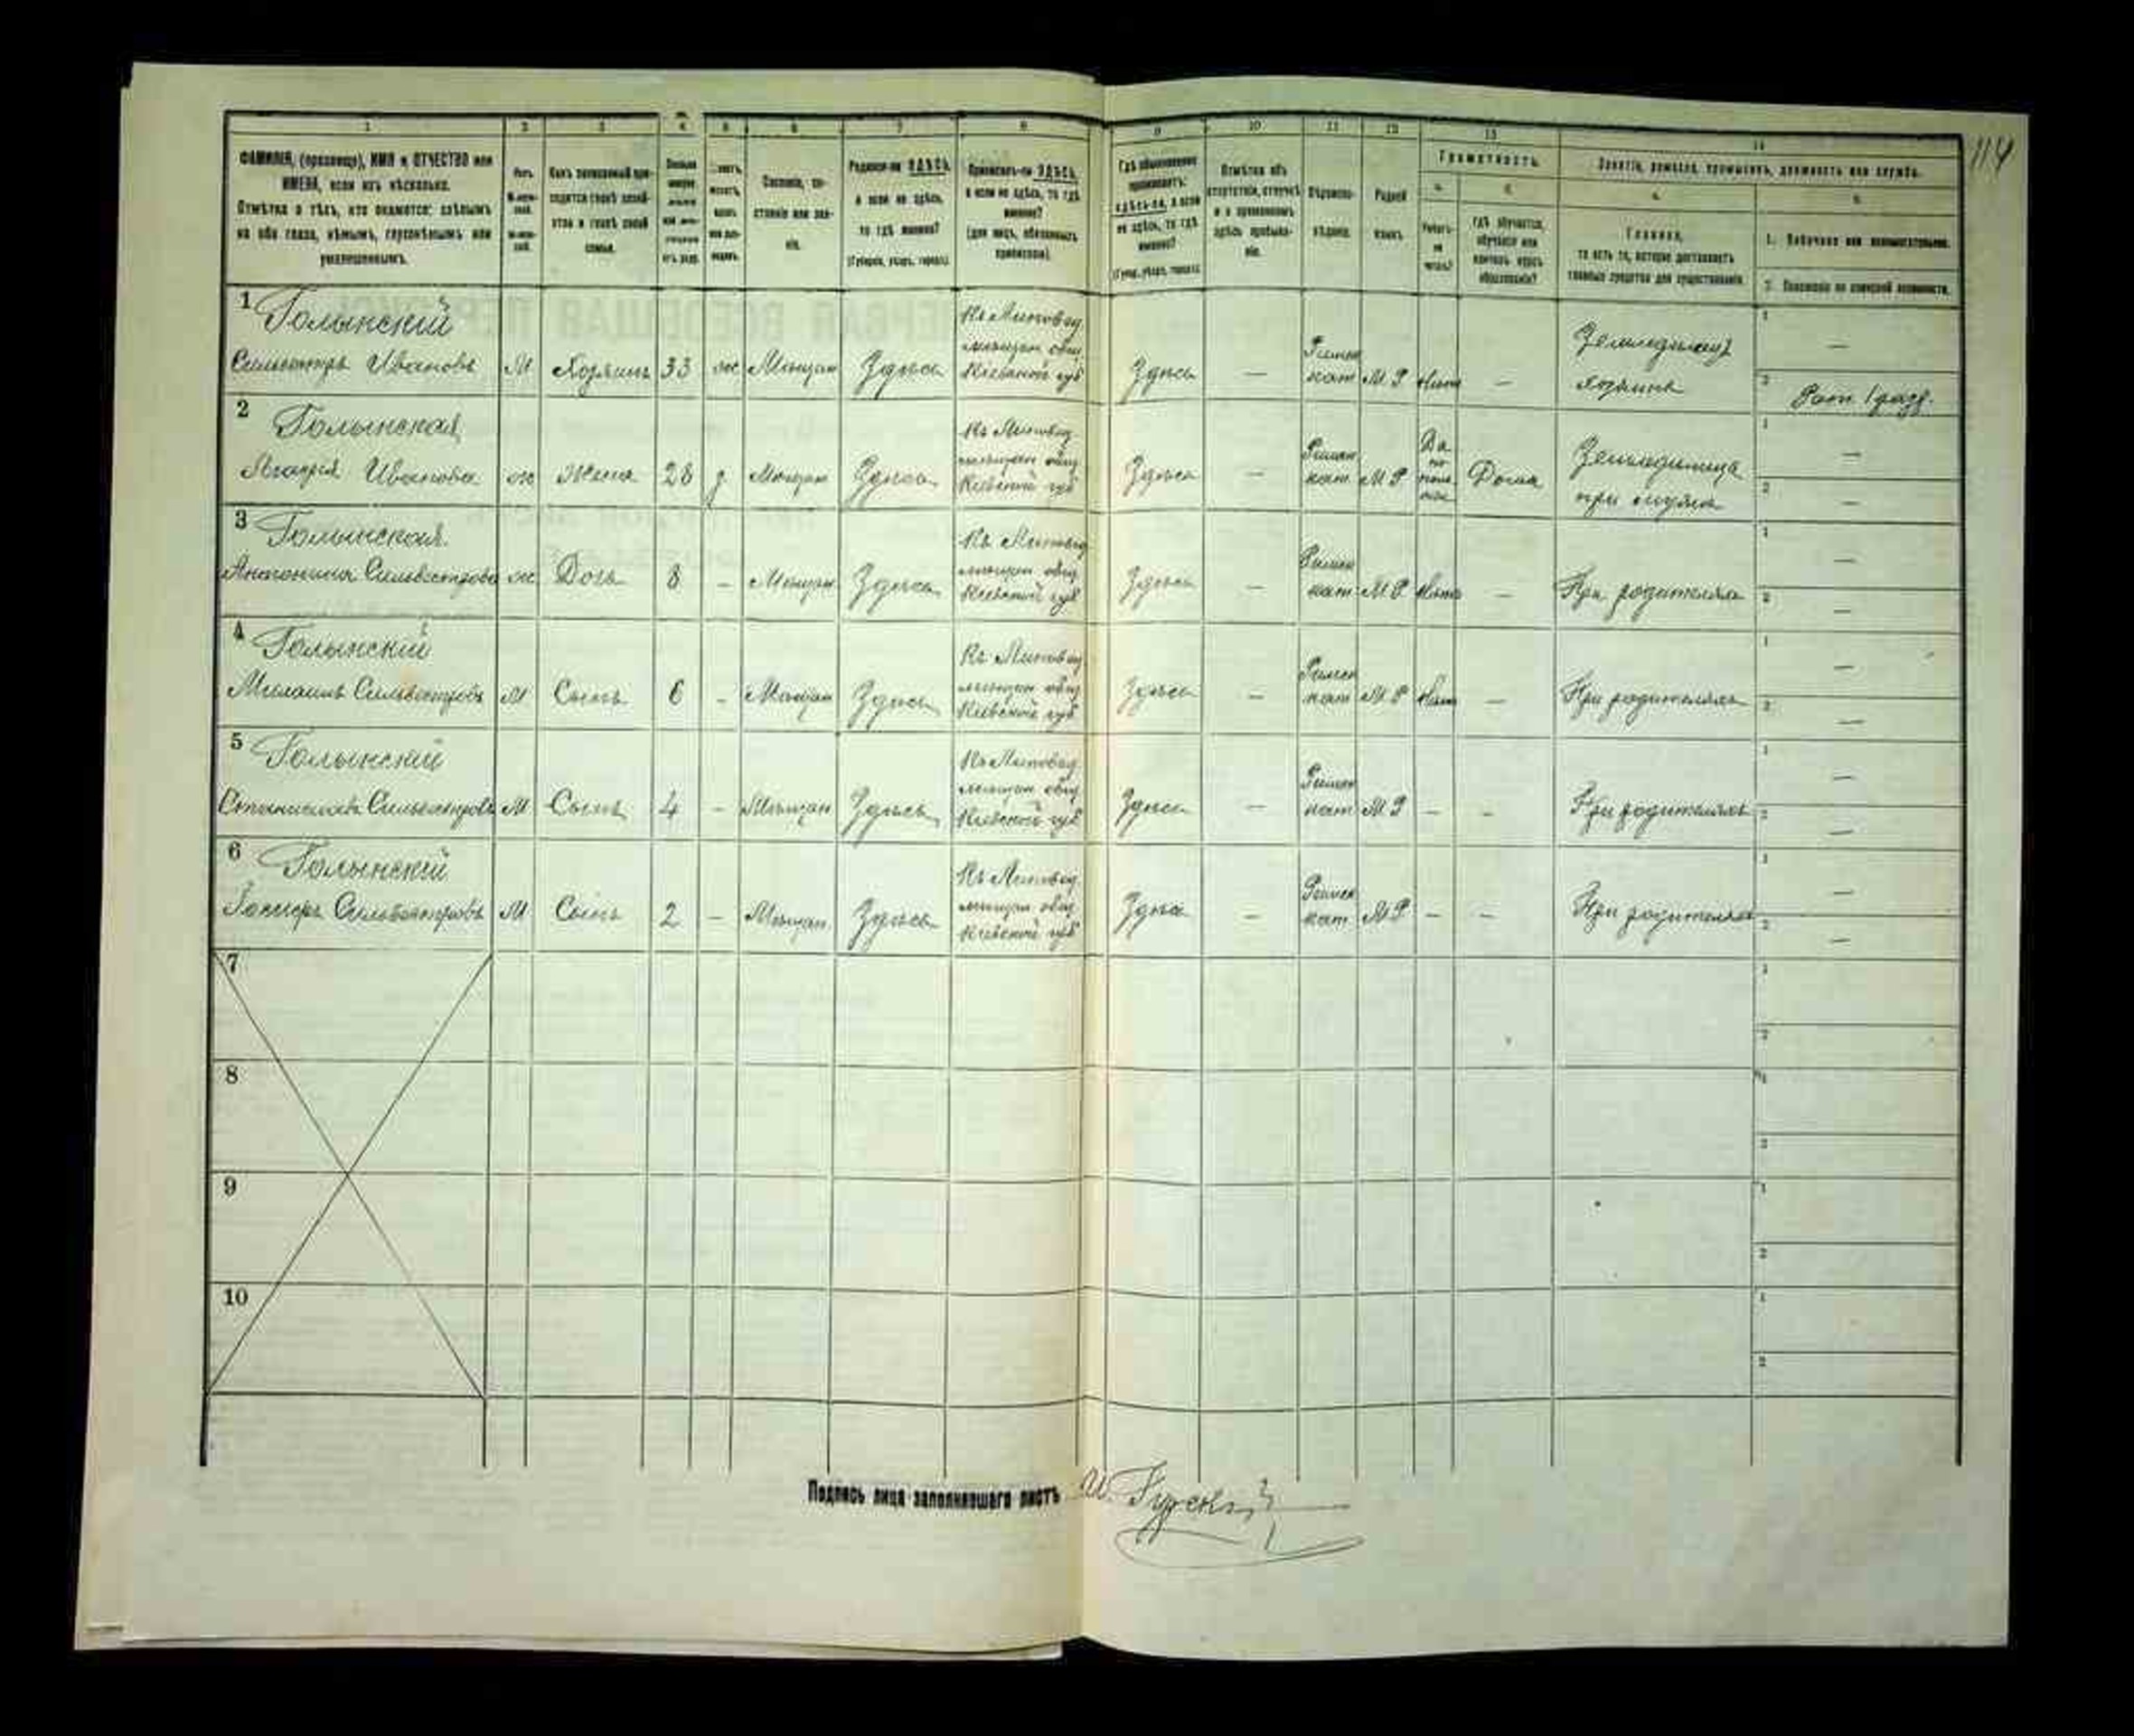 114
1 2 3 4 5 6 7 8 9 10 11 12 13 14
ФАМИЛІЯ, (прозвище), ИМЯ и ОТЧЕСТВО или
ИМЕНА, если ихъ нѣсколько.
Отмѣтка о тѣхъ, кто окажется: слѣпымъ
на оба глаза, нѣмымъ, глухонѣмымъ или
умалишеннымъ.
Сословіе, со-
стояніе или зва-
ніе.
Родился-ли ЗДѢСЬ,
а если не здѣсь,
то гдѣ именно?
(Губернія, уѣздъ, городъ).
Приписанъ-ли ЗДѢСЬ,
а если не здѣсь, то гдѣ
именно?
(для лицъ, обязанныхъ
припискою).
Гдѣ обыкновенно
проживаетъ:
здѣсь-ли, а если
не здѣсь, то гдѣ
именно?
(Губер., уѣздъ, городъ).
Отмѣтка объ
отсутствіи, отлучкѣ
и о временномъ
здѣсь пребыва-
ніи.
Вѣроиспо-
вѣданіе.
Родной
языкъ.
Грамотность.
а. б.
Умѣетъ-
ли
читать?
гдѣ обучается,
обучался или
кончилъ курсъ
образованія?
Занятіе, ремесло, промыселъ, должность или служба.
а. б.
Главное,
то есть то, которое доставляетъ
главныя средства для существованія.
1. Побочное или вспомогательное.
2. Положеніе по воинской повинности.
1 Голынскій
Сильвестръ Ивановъ М Хозяинъ 33 ж Мѣщан Здѣсь
Къ Липовец.
мѣщан общ.
Кіевской губ
Здѣсь — Римск
кат М Р Нѣтъ —
хозяинъ
1 —
2 Рат. 1 разр.
2 Голынская
Ивановна ж Жена 28 з Мѣщан Здѣсь
Къ Липовец.
мѣщан общ.
Кіевской губ
Здѣсь — Римск
кат М Р Да
по
Дома
при мужѣ
1 —
2 —
3 Голынская
Антонина Сильвестрова ж Дочь 8 – Мѣщан Здѣсь
Къ Липовец
мѣщан общ.
Кіевской губ
Здѣсь — Римск
кат М Р Нѣтъ — При родителяхъ
1 —
2 —
4 Голынскій
Михаилъ Сильвестровъ М Сынъ 6 – Мѣщан Здѣсь
Къ Липовец
мѣщан общ
Кіевской губ
Здѣсь — Римск
кат М Р Нѣтъ — При родителяхъ
1 —
2 —
5 Голынскій
Станиславъ Сильвестровъ М Сынъ 4 – Мѣщан Здѣсь
Къ Липовец
мѣщан общ
Кіевской губ
Здѣсь — Римск
кат М Р – – При родителяхъ
1 —
2 —
6 Голынскій
Іосифъ Сильвестровъ М Сынъ 2 – Мѣщан Здѣсь
Къ Липовец
мѣщан общ
Кіевской губ
Здѣсь — Римск
кат М Р – – При родителяхъ
1 —
2 —
7
1
2
8
1
2
9
1
2
10
1
2
Подпись лица заполнившаго листъ И. Гурскій